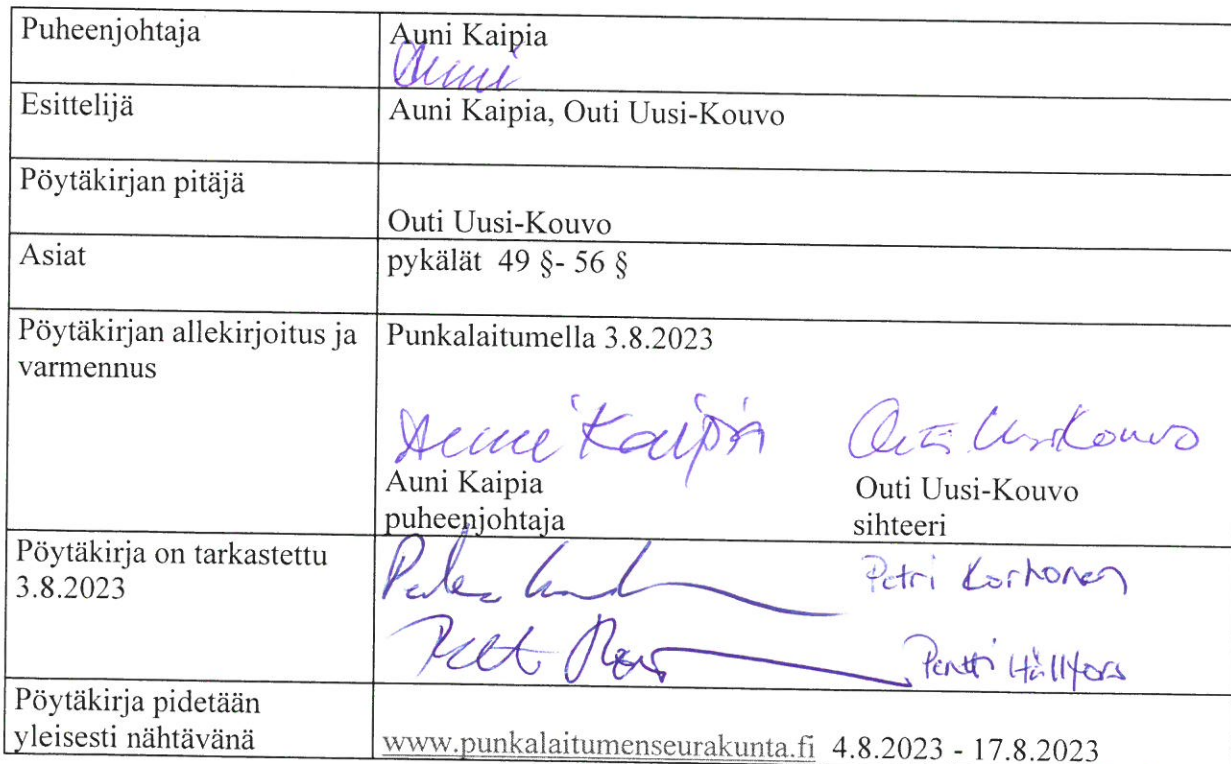 Puheenjohtaja
Auni Kaipia
Auni
Esittelijä
Auni Kaipia, Outi Uusi-Kouvo
Pöytäkirjan pitäjä
Outi Uusi-Kouvo
Asiat
pykälät 49 §- 56 §
Pöytäkirjan allekirjoitus ja
varmennus
Punkalaitumella 3.8.2023
Auni Kaipia Outi Uusi-Kouvo
Auni Kaipia Outi Uusi-Kouvo
puheenjohtaja sihteeri
Pöytäkirja on tarkastettu
3.8.2023
Petri Korhonen
Pentti Hällfors
Pöytäkirja pidetään
yleisesti nähtävänä
www.punkalaitumenseurakunta.fi 4.8.2023 - 17.8.2023